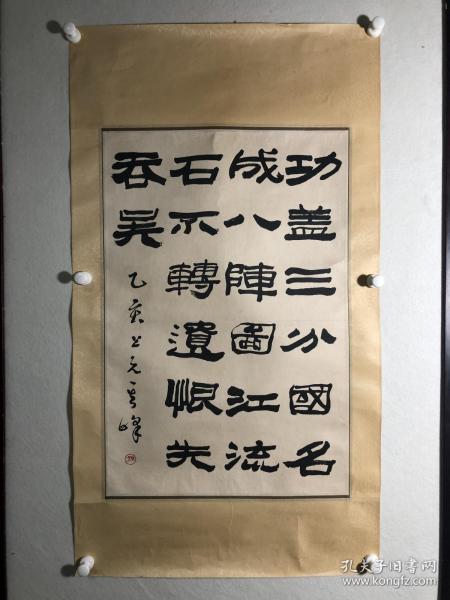 功盖三分國名
成八陣圖江流
石不轉遺恨失
吞吴
乙亥上元峰
孔夫子旧书网
www.kongfz.com